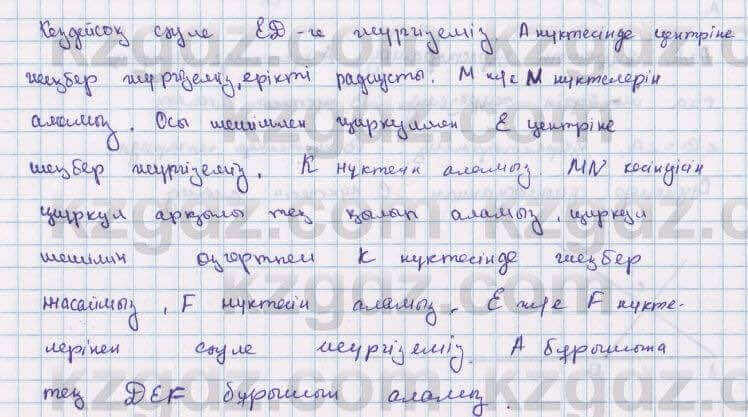 Кездейсоқ сәуле ED-ге жүргіземіз. A нүктесінде центріне
шеңбер жүргіземіз, ерікті радиусты. M және M нүктелерін
аламыз. Осы шешіммен циркулмен E центріне
шеңбер жүргіземіз. K нүктені аламыз. MN кесіндісін
циркул арқылы тең қылып аламыз, циркул
шешімін өзгертпей K нүктесінде шеңбер
жасаймыз, F нүктесін аламыз. E және F нүкте-
лерінен сәуле жүргіземіз. A бұрышына
тең DEF бұрышын аламыз.
kzgdz.com